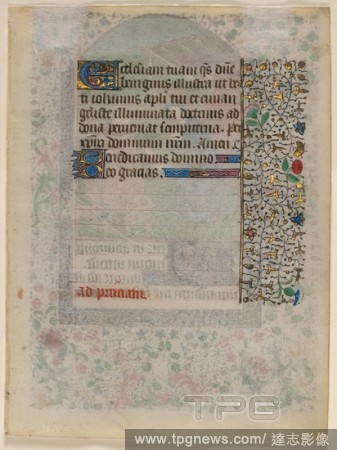 Ecclesiam tuam qs dne
benignus illustra ut be
ati iohannis apli tui et euan
geliste illuminata doctrinis ad
dona perueniat sempiterna. Per
xpm dominum nrm. Amen.
Benedicamus domino
deo gracias.
Ad primam.
TPG
www.tpgnews.com/ 達志影像